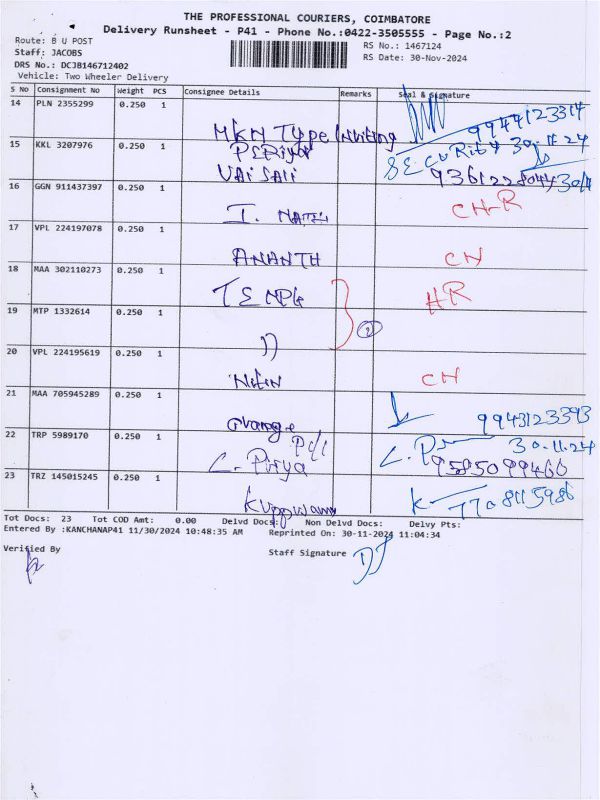 THE PROFESSIONAL COURIERS, COIMBATORE
Delivery Runsheet - P41 - Phone No.:0422-3505555 - Page No.:2
Route: B U POST
Staff: JACOBS
DRS No.: DCJB146712402
Vehicle: Two Wheeler Delivery
RS No.: 1467124
RS Date: 30-Nov-2024
S No Consignment No Weight PCS Consignee Details Remarks Seal & Signature
14 PLN 2355299 0.250 1 MKM Type writing 9944123314
15 KKL 3207976 0.250 1 PERIYA SECURITY 30.11.24
VAISALI 9361228044 30/11
16 GGN 911437397 0.250 1
I. CH-R
17 VPL 224197078 0.250 1
ANANTH CH
18 MAA 302110273 0.250 1 TEMPLE HR
19 MTP 1332614 0.250 1 2
"
20 VPL 224195619 0.250 1
Nitin CH
21 MAA 705945289 0.250 1
orange 9943123393
22 TRP 5989170 0.250 1 30.11.24
L. Priya 9585099460
23 TRZ 145015245 0.250 1
Kuppuswamy K 7708115986
Tot Docs: 23 Tot COD Amt: 0.00 Delvd Docs: Non Delvd Docs: Delvy Pts:
Entered By :KANCHANAP41 11/30/2024 10:48:35 AM Reprinted On: 30-11-2024 11:04:34
Verified By Staff Signature